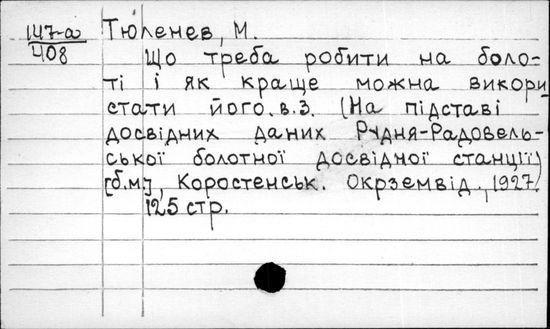 147-а
408
Тюленев, М.
Що треба робити на боло-
ті і як краще можна викори
стати його. в.3. (На підставі
досвідних даних Рудня-Радовель-
ської болотної досвідної станції)
[б.м.], Коростенськ. Окрземвід, 1927.
125 стр.